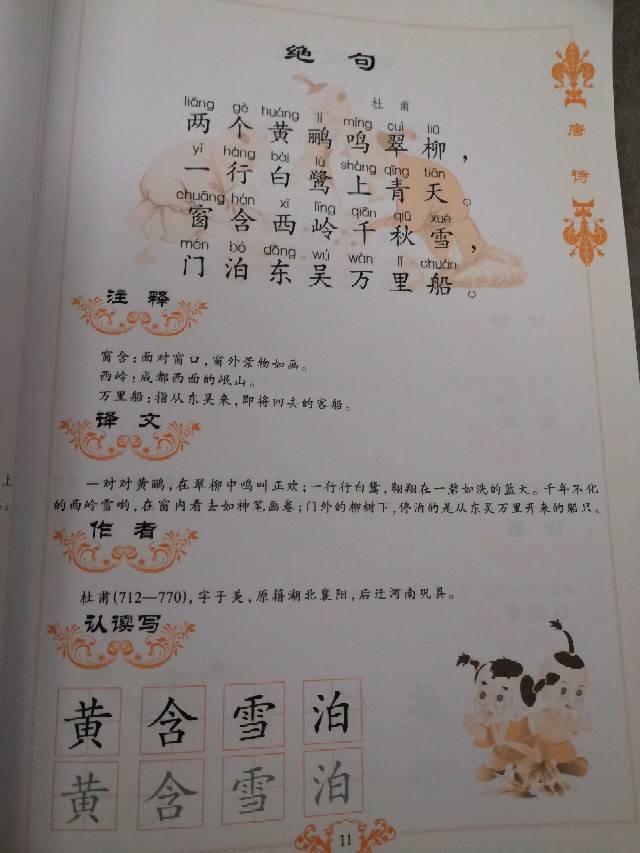 绝句
杜甫
liǎng gè huáng lí míng cuì liǔ
两个黄鹂鸣翠柳，
yī háng bái lù shàng qīng tiān
一行白鹭上青天。
chuāng hán xī lǐng qiān qiū xuě
窗含西岭千秋雪，
mén bó dōng wú wàn lǐ chuán
门泊东吴万里船。
唐诗
注释
窗含：面对窗口，窗外景物如画。
西岭：成都西面的岷山。
万里船：指从东吴来，即将回去的客船。
译文
一对对黄鹂，在翠柳中鸣叫正欢；一行行白鹭，翱翔在一碧如洗的蓝天。千年不化
的西岭雪哟，在窗内看去如神笔画卷；门外的柳树下，停泊的是从东吴万里开来的船只。
作者
杜甫(712—770)，字子美，原籍湖北襄阳，后迁河南巩县。
认读写
黄含雪泊
黄含雪泊
11
上